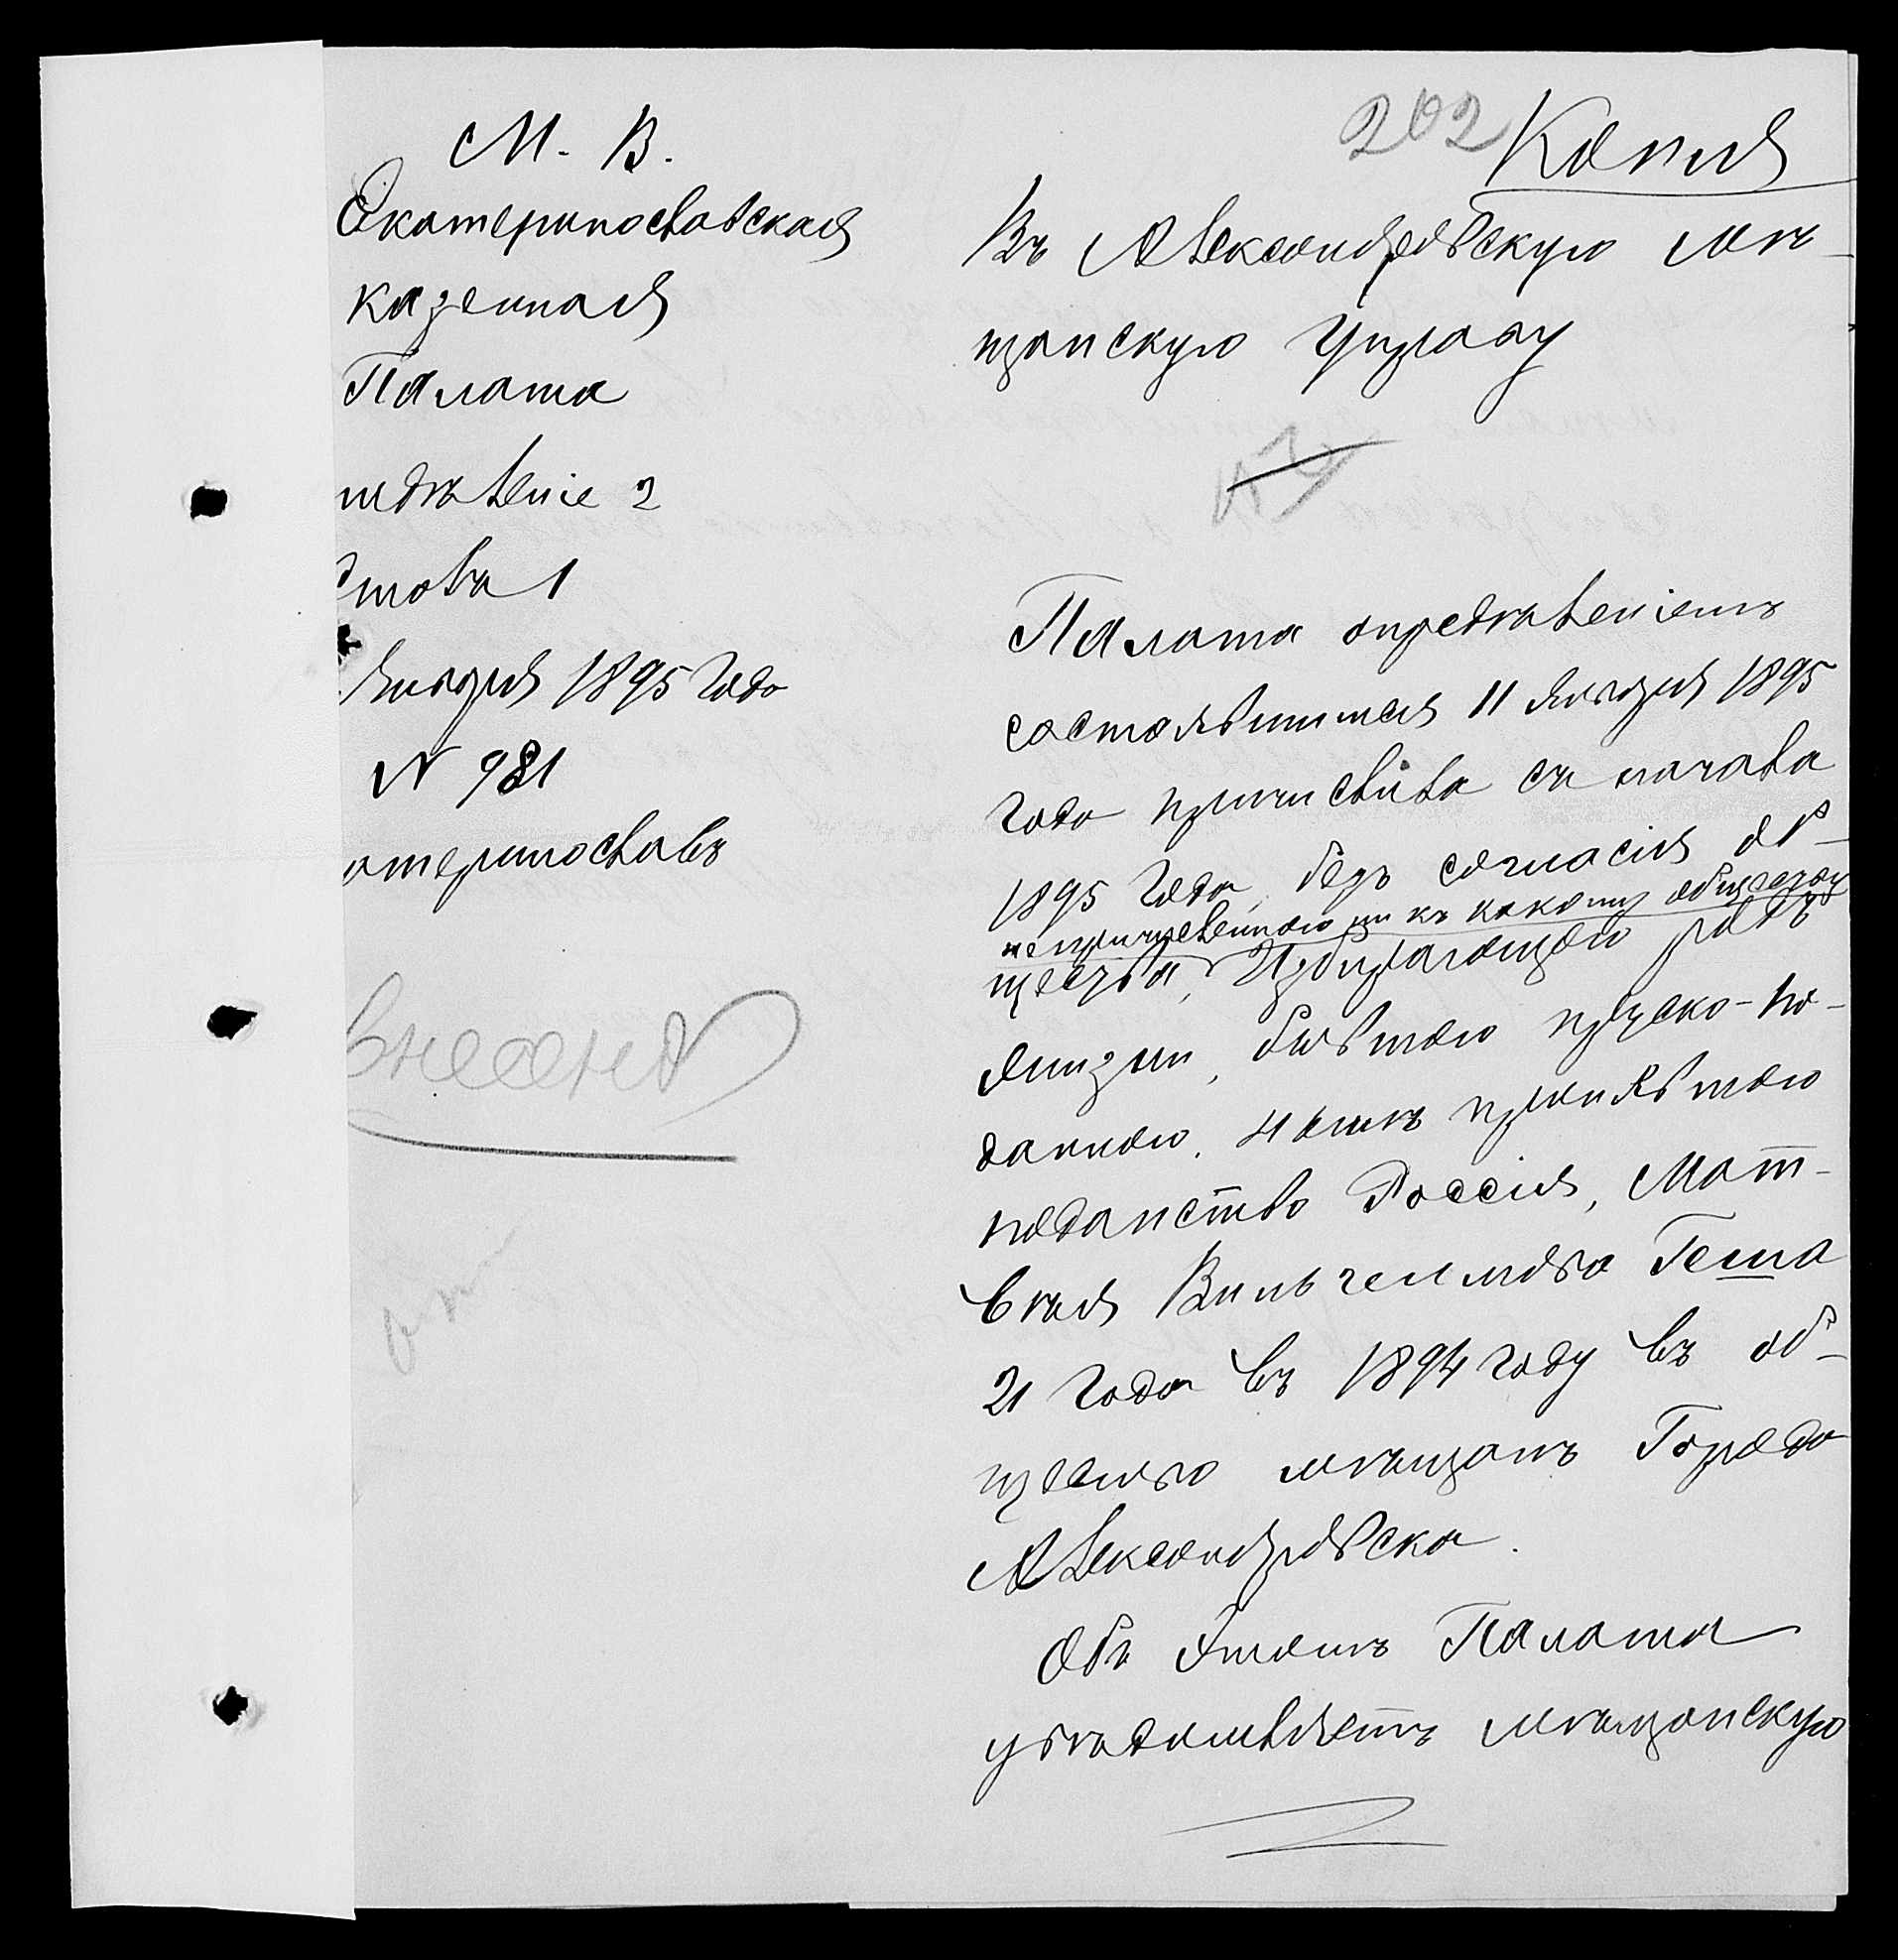 М. В.
Екатеринославская
казенная
Палата
тдѣленіе 2
Столъ 1
Января 1895 года
N 981
атеринославъ
внесенъ
202 Копия
Въ Александровскую мѣ-
щанскую Управу
Палата опредѣленіемъ
состоявшимся 11 Января 1895
года причислила съ начала
1895 года, безъ согласія об-
непричисленного ни къ какому обществу
щества, Избирающаго родъ
жизни, бывшаго прусско-по-
данного, нынѣ принявшаго
поданство Россіи, Мат-
вея Вильгельмова Геша
21 года въ 1894 году въ об-
щество мѣщанъ Города
Александровска.
Объ этомъ Палата
увѣдомляетъ Мѣщанскую